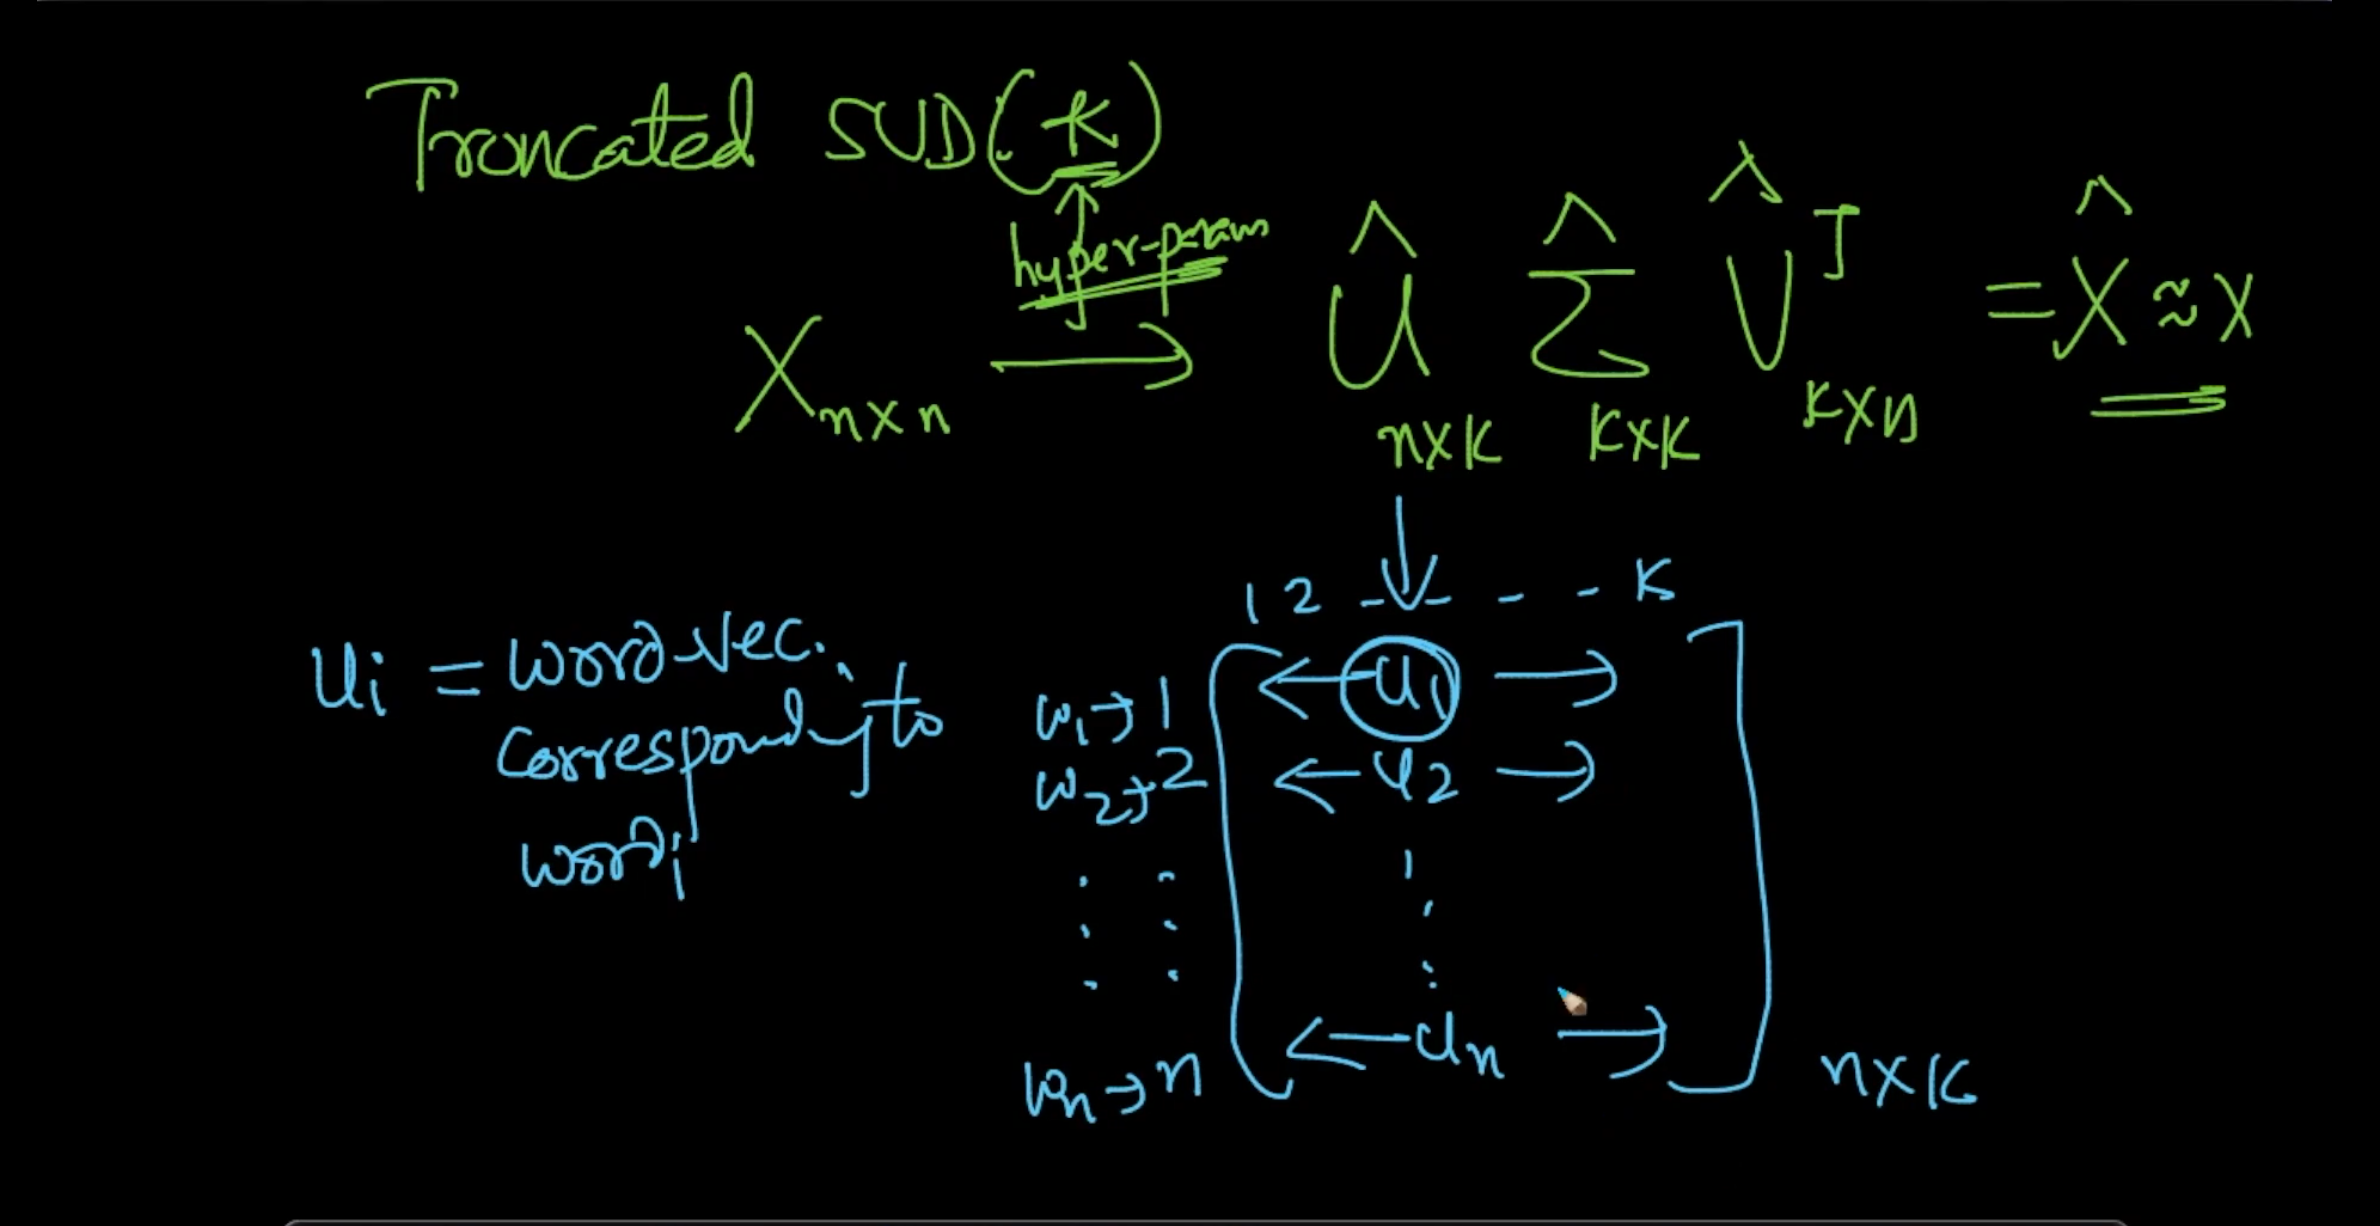 Troncated SVD(k)
hyper-param
X n×n → Û Σ̂ V̂ᵀ = X̂ ≈ X
n×k k×k k×n
1 2 - - - - k
Ui = word vec.
corresponding to
word i
w1 → 1 ← U1 →
w2 → 2 ← U2 →
wn → n ← Un →
n×k